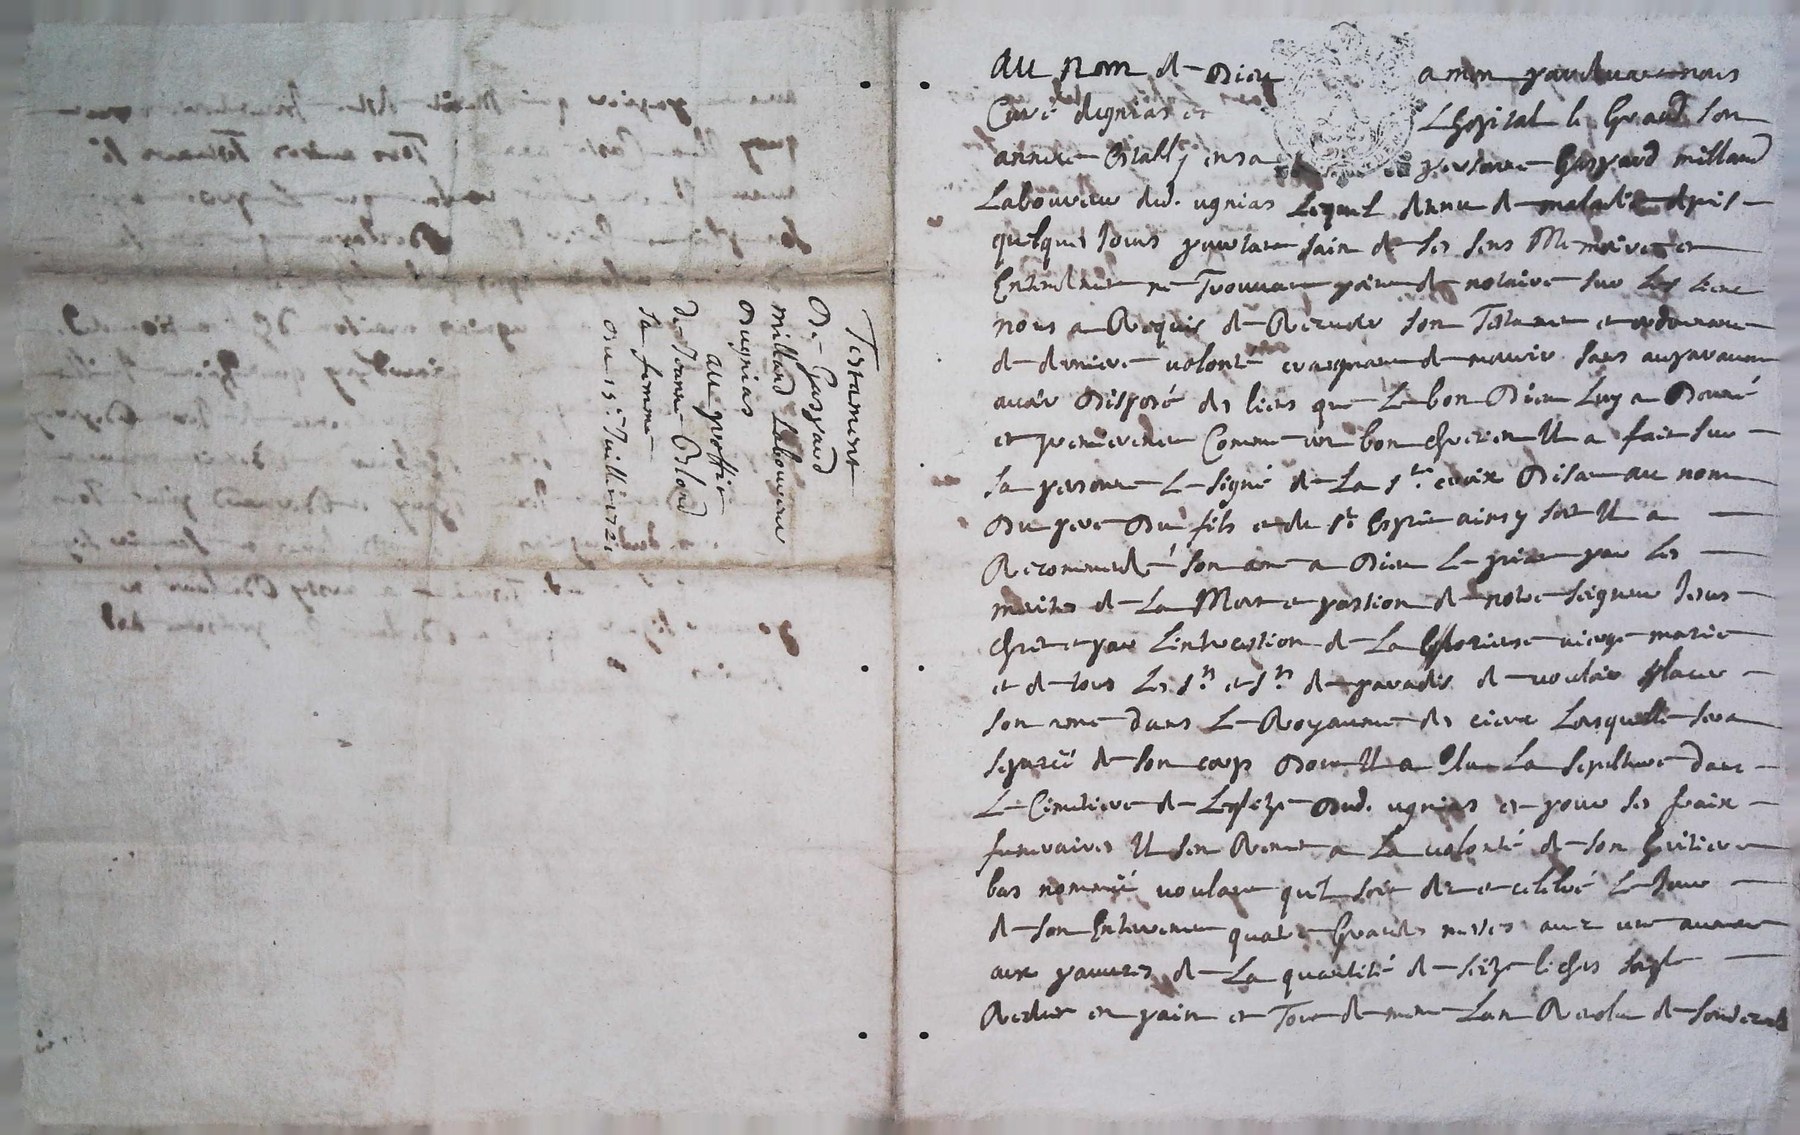 Testament
De Gaspard
Millard Laboureur
Dugnias
au proffit
De Jeanne Erlond
Sa femme
Du 15e Juillet 1721
Au Nom de Dieu amen pardevant nous
Curé dugnias et Lhopital le Grand son
annexe Estably en sa personne Gaspard millard
Laboureur dud. ugnias Lequel detenu de maladie depuis
quelques Jours pourtant sain de ses sens Memoire et
Entendement ne Trouvant point de notaire sur les lieux
nous a Requis de Recevoir son Testament et ordonnance
de derniere volonté craignant de mourir sans auparavant
avoir Disposé des biens que Le bon Dieu Luy a Donné
et premierement Comme un bon chretien Il a fait sur
sa personne Le signe de La ste. croix Disant au nom
Du pere Du fils et du st Esprit ainsy soit Il a
Recommendé son ame a Dieu Le priant par les
merites de La Mort et passion de notre seigneur Jesus
Christ et par Lintercestion de La Glorieuse vierge marie
et de tous Les sts et stes de paradis de vouloir placer
son ame dans Le Royaume des cieux Lorsquelle sera
separée de son corps Dont Il a Elu La sepulture dans
Le Cimetiere de Leglize Dud. ugnias et pour ses fraix
funeraires Il sen Remet a La volonté de son heritiere
bas nommée voulant quil soit dit et celebré Le Jour
de son Enterrement quatre Grandes messes avec une aumone
aux pauvres de La quantité de seize bichets segle
Reduit en pain et Tout de meme Lan Revolu de son deceds